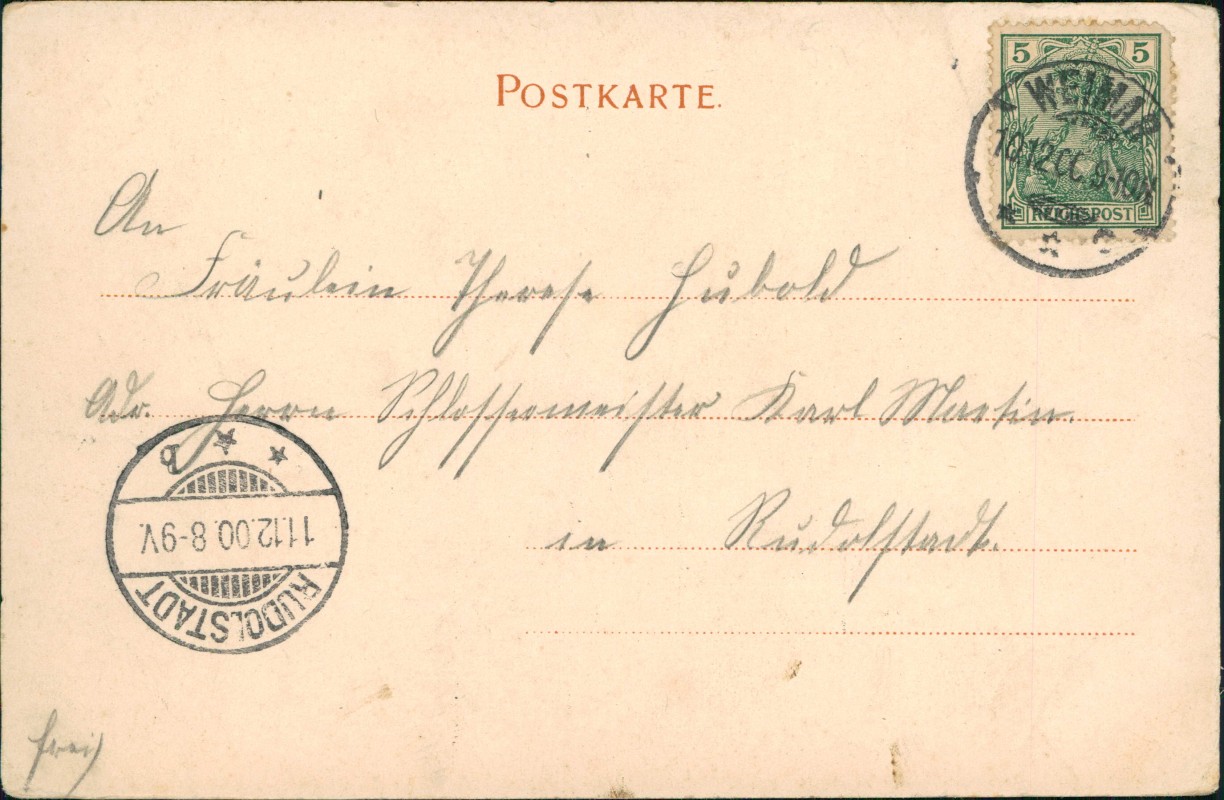 POSTKARTE.
5 5
REICHSPOST
WEIMAR
10.12.00. 9-10N.
An
Fräulein Therese Hubold
Adr. Herrn Schlossermeister Karl Martin.
in Rudolstadt.
b
11.12.00. 8-9V.
RUDOLSTADT
frei